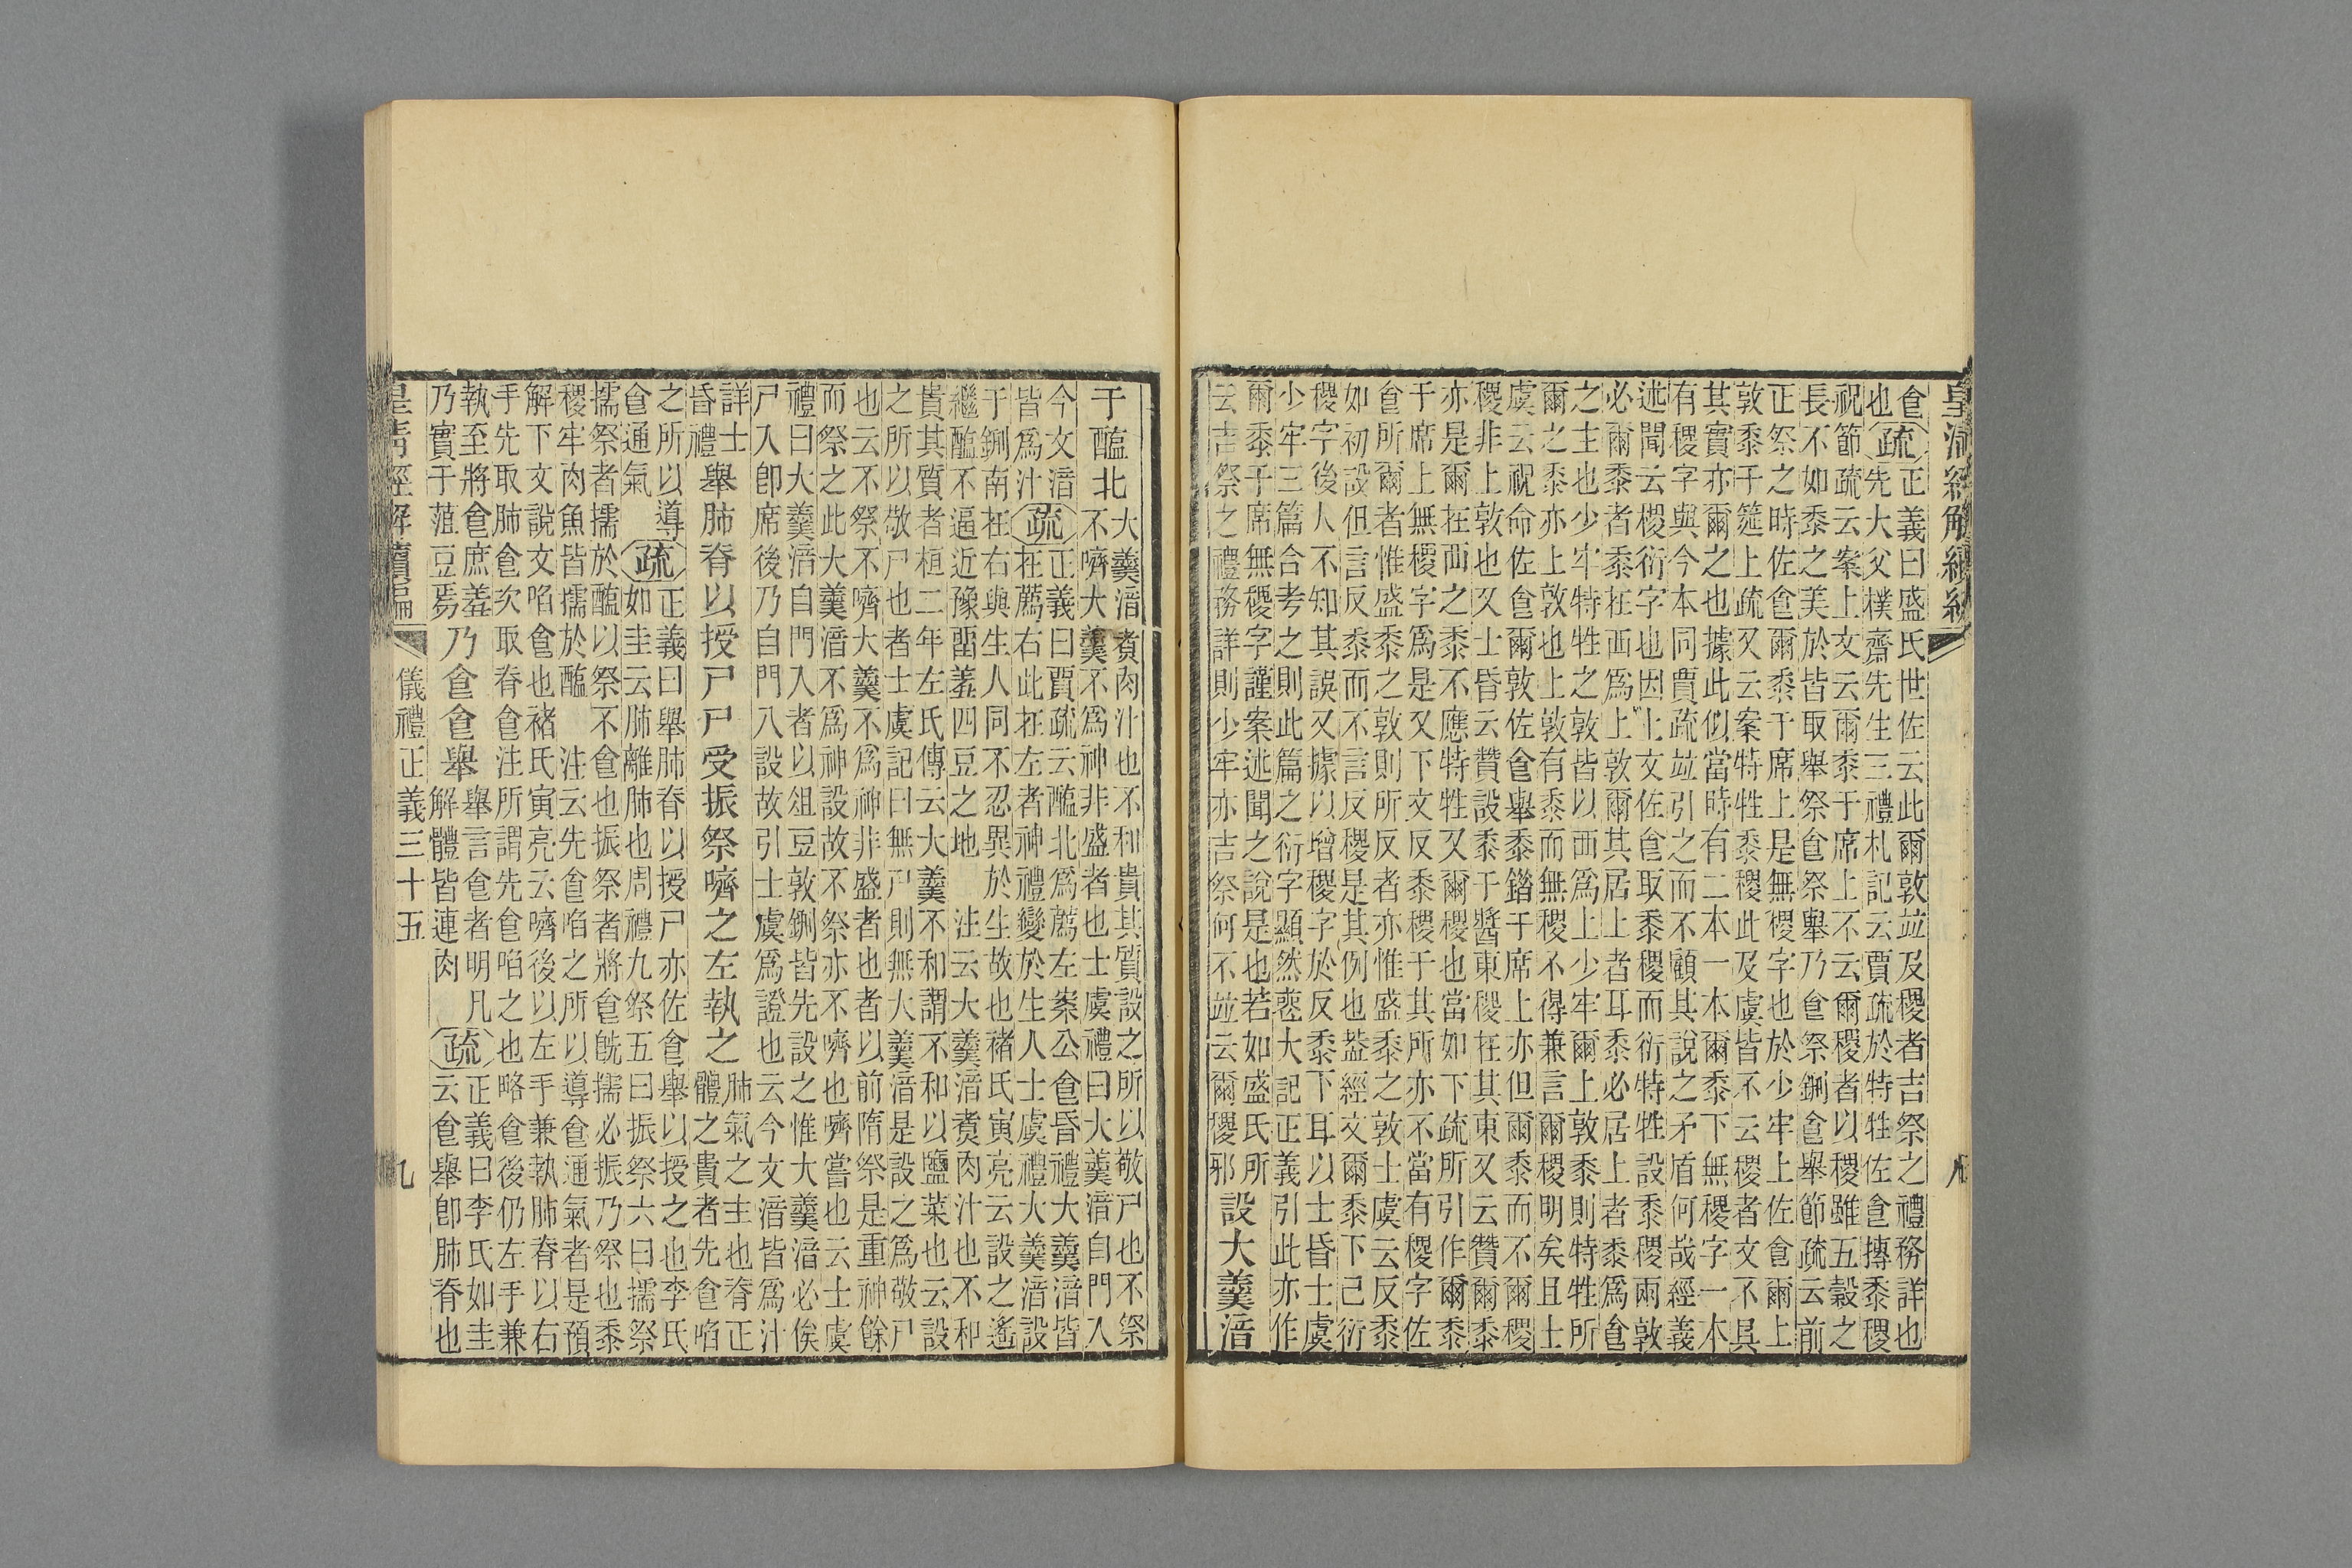 皇清經解續編
八
食
也
疏
正義曰盛氏世佐云此爾敦竝及稷者吉祭之禮務詳也
先大父樸齋先生三禮札記云賈疏於特牲佐食摶黍稷
祝節疏云案上文云爾黍于席上不云爾稷者以稷雖五穀之
長不如黍之美於皆取舉祭食祭舉乃食祭鉶食舉節疏云前
正祭之時佐食爾黍于席上是無稷字也於少牢上佐食爾上
敦黍于筵上疏又云案特牲黍稷此及虞皆不云稷者文不具
其實亦爾之也據此似當時有二本一本爾黍下無稷字一本
有稷字與今本同賈疏竝引之而不顧其說之矛盾何哉經義
述聞云稷衍字也因上文佐食取黍稷而衍特牲設黍稷兩敦
必爾黍者黍在西爲上敦爾其居上者耳黍必居上者黍爲食
之主也少牢特牲之敦皆以西爲上少牢爾上敦黍則特牲所
爾之黍亦上敦也上敦有黍而無稷不得兼言爾稷明矣且士
虞云祝命佐食爾敦佐食舉黍錯于席上亦但爾黍而不爾稷
稷非上敦也又士昏云贊設黍于醬東稷在其東又云贊爾黍
亦是爾在西之黍不應特牲又爾稷也當如下疏所引作爾黍
于席上無稷字爲是又下文反黍稷于其所亦不當有稷字佐
食所爾者惟盛黍之敦則所反者亦惟盛黍之敦士虞云反黍
如初設但言反黍而不言反稷是其例也葢經文爾黍下已衍
稷字後人不知其誤又據以增稷字於反黍下耳以士昏士虞
少牢三篇合考之則此篇之衍字顯然大記正義引此亦作
爾黍于席無稷字謹案述聞之說是也若如盛氏所
云吉祭之禮務詳則少牢亦吉祭何不竝云爾稷邪
設大羹湆
于醢北
大羹湆煑肉汁也不和貴其質設之所以敬尸也不祭
不嚌大羹不爲神非盛者也士虞禮曰大羹湆自門入
今文湆
皆爲汁
疏
正義曰賈疏云醢北爲薦左案公食昏禮大羹湆皆
在薦右此在左者神禮變於生人士虞禮大羹湆設
于鉶南在右與生人同不忍異於生故也褚氏寅亮云設之遙
繼醢不逼近豫留羞四豆之地 注云大羹湆煑肉汁也不和
貴其質者桓二年左氏傳云大羹不和謂不和以鹽菜也云設
之所以敬尸也者士虞記曰無尸則無大羹湆是設之爲敬尸
也云不祭不嚌大羹不爲神非盛者也者以前隋祭是重神餘
而祭之此大羹湆不爲神設故不祭亦不嚌也嚌嘗也云士虞
禮曰大羹湆自門入者以俎豆敦鉶皆先設之惟大羹湆必俟
尸入卽席後乃自門入設故引士虞爲證也云今文湆皆爲汁
詳士
昏禮
舉肺脊以授尸尸受振祭嚌之左執之
肺氣之主也脊正
體之貴者先食啗
之所以導
食通氣
疏
正義曰舉肺脊以授尸亦佐食舉以授之也李氏
如圭云肺離肺也周禮九祭五曰振祭六曰擩祭
擩祭者擩於醢以祭不食也振祭者將食旣擩必振乃祭也黍
稷牢肉魚皆擩於醢 注云先食啗之所以導食通氣者是預
解下文說文啗食也褚氏寅亮云嚌後以左手兼執肺脊以右
手先取肺食次取脊食注所謂先食啗之也略食後仍左手兼
執至將食庶羞
乃實于菹豆焉
乃食食舉
舉言食者明凡
解體皆連肉
疏
正義曰李氏如圭
云食舉卽肺脊也
皇清經解續編
儀禮正義三十五
九